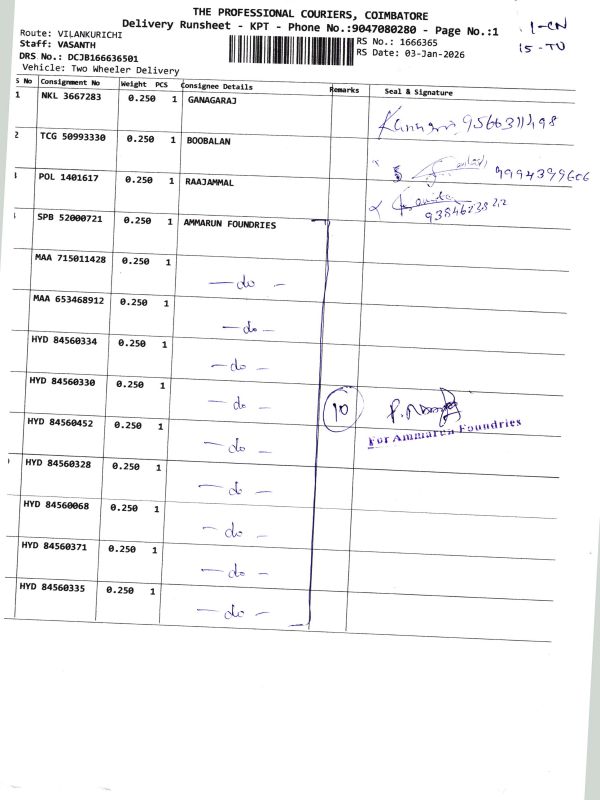 THE PROFESSIONAL COURIERS, COIMBATORE
Delivery Runsheet - KPT - Phone No.:9047080280 - Page No.:1
1-CN
15-TU
Route: VILANKURICHI
Staff: VASANTH
DRS No.: DCJB166636501
Vehicle: Two Wheeler Delivery
RS No.: 1666365
RS Date: 03-Jan-2026
S No Consignment No Weight PCS Consignee Details Remarks Seal & Signature
1 NKL 3667283 0.250 1 GANAGARAJ
2 TCG 50993330 0.250 1 BOOBALAN
9994399606
POL 1401617 0.250 1 RAAJAMMAL
SPB 52000721 0.250 1 AMMARUN FOUNDRIES
MAA 715011428 0.250 1 - do -
MAA 653468912 0.250 1 - do -
HYD 84560334 0.250 1 - do -
HYD 84560330 0.250 1 - do - 10
For Ammarun Foundries
HYD 84560452 0.250 1 - do -
HYD 84560328 0.250 1 - do -
HYD 84560068 0.250 1 - do -
HYD 84560371 0.250 1 - do -
HYD 84560335 0.250 1 - do -